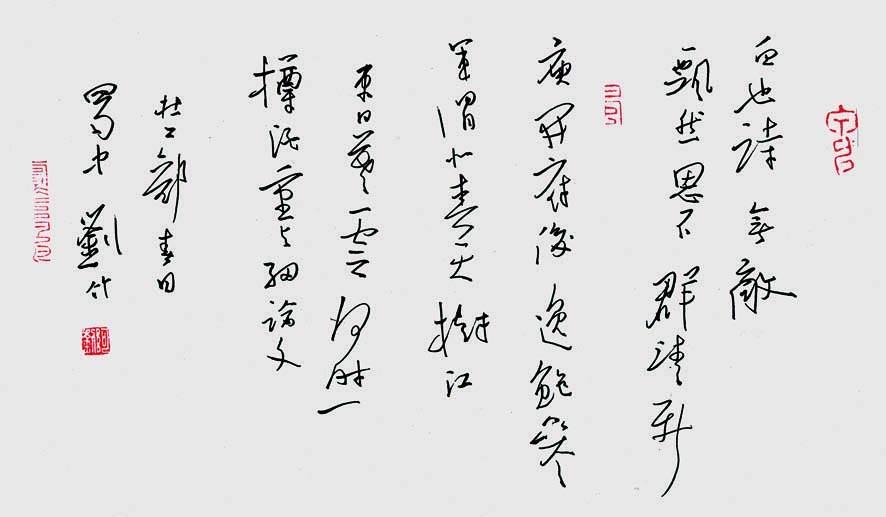 白也詩無敵
飄然思不群清新
庾開府俊逸鮑參
軍渭北春天樹江
東日暮雲何時一
樽酒重与細論文
杜工部春日
蜀中劉竹